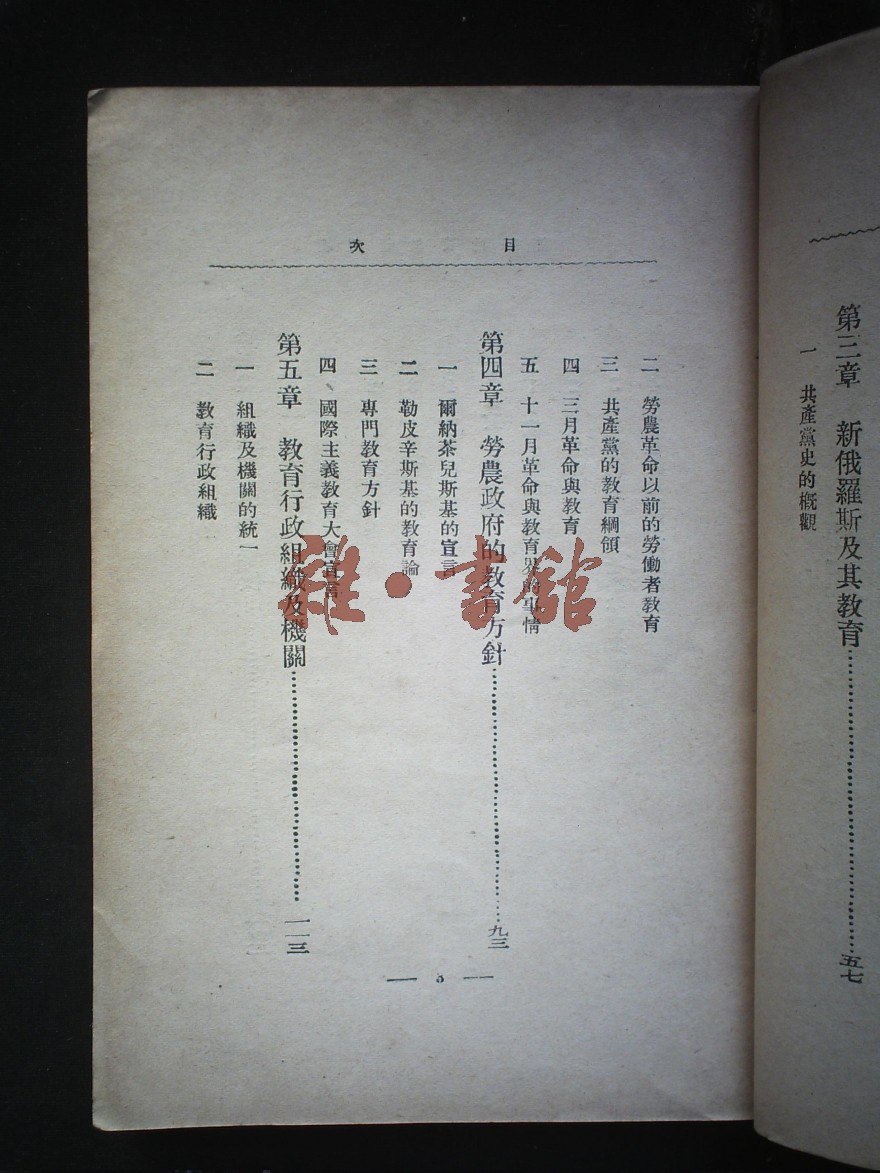 第三章　新俄羅斯及其教育……五七
一　共產黨史的概觀
目次
二　勞農革命以前的勞働者教育
三　共產黨的教育綱領
四　三月革命與教育
五　十一月革命與教育界的事情
第四章　勞農政府的教育方針……九三
一　爾納茶兒斯基的宣言
二　勒皮辛斯基的教育論
三　專門教育方針
四、國際主義教育大會宣言
第五章　教育行政組織及機關……一一三
一　組織及機關的統一
二　教育行政組織
— 3 —
雜·書館